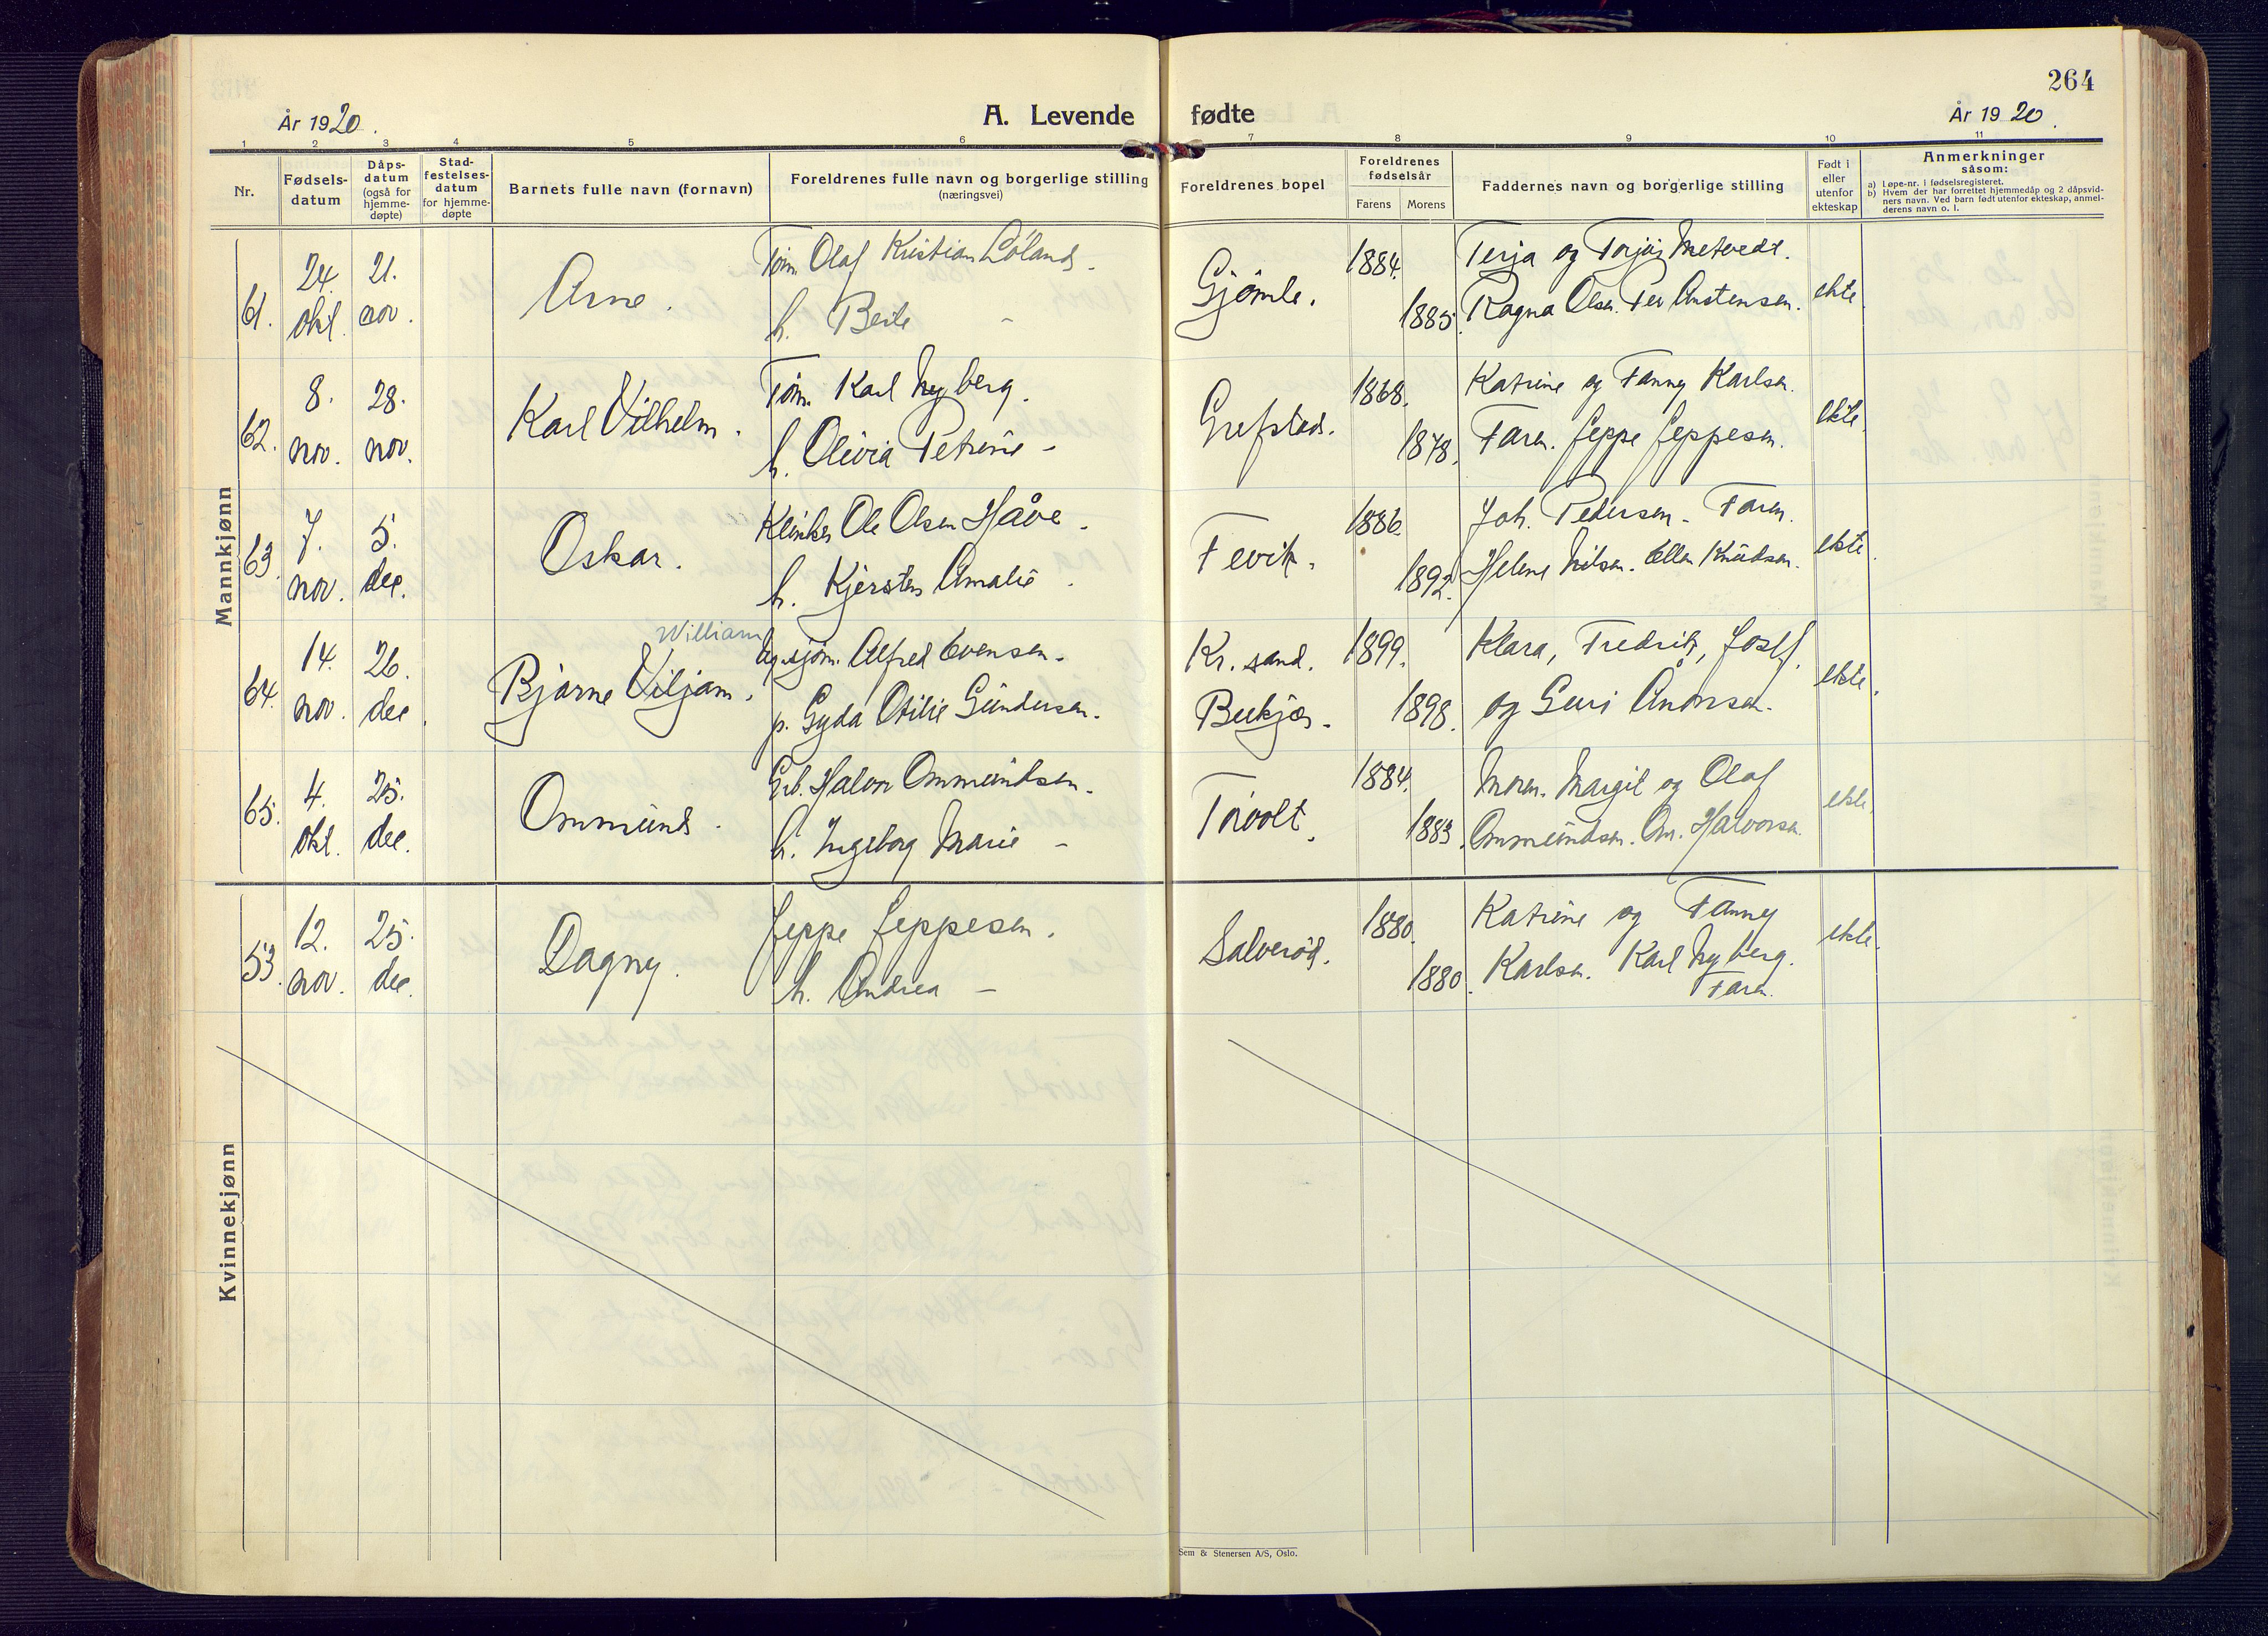 264
År 1920.
A. Levende fødte
År 1920.
1 2 3 4 5 6 7 8 9 10 11
Nr.
Fødsels-
datum
Dåps-
datum
(også for
hjemme-
døpte)
Stad-
festelses-
datum
for hjemme-
døpte
Barnets fulle navn (fornavn)
Foreldrenes fulle navn og borgerlige stilling
(næringsvei)
Foreldrenes bopel
Foreldrenes
fødselsår
Farens Morens
Faddernes navn og borgerlige stilling
Født i
eller
utenfor
ekteskap
Anmerkninger
såsom:
a) Løpe-nr. i fødselsregisteret.
b) Hvem der har forrettet hjemmedåp og 2 dåpsvid-
ners navn. Ved barn født utenfor ekteskap, anmel-
derens navn o. l.
Mannkjønn
61. 24. okt. 21. nov. Arne.
Tøm. Olaf Kristian Löland.
h. Berte -
Gjömle. 1884. 1885.
Terja og Torjus Metvedt.
Ragna Olsen. Per Anstensen.
ekte.
62. 8. nov. 28. nov. Karl Vilhelm.
Tøm. Karl Nyberg.
h. Olivia Petrine -
Grefstad. 1868. 1878.
Katrine og Fanny Karlsen.
Faren. Jeppe Jeppesen.
ekte.
63. 7. nov. 5. dec. Oskar.
Klinker Ole Olsen Håve.
h. Kjersten Amalie.
Fevik. 1886. 1892.
Joh. Pedersen. Faren.
Helene Nilsen. Ellen Knudsen.
ekte.
William
64. 14. nov. 26. dec. Bjarne Viljam.
Ug. sjøm. Alfred Evensen.
p. Gyda Otilie Gundersen.
Kr. sand. Beekjær. 1899. 1898.
Klara, Fredrik, Josef,
og Guri Andersen.
ekte.
65. 4. okt. 25. dec. Ommund.
Grb. Halvor Ommundsen.
h. Ingeborg Marie -
Torvolt. 1884. 1883.
Moren. Margit og Olaf
Ommundsen. Om. Halvorsen.
ekte
Kvinnekjønn
53. 12. nov. 25. dec. Dagny.
Jeppe Jeppesen.
h. Andrea -
Salverød. 1880. 1880.
Katrine og Fanny
Karlsen. Karl Nyberg.
Faren.
ekte.
Sem & Stenersen A/S, Oslo.